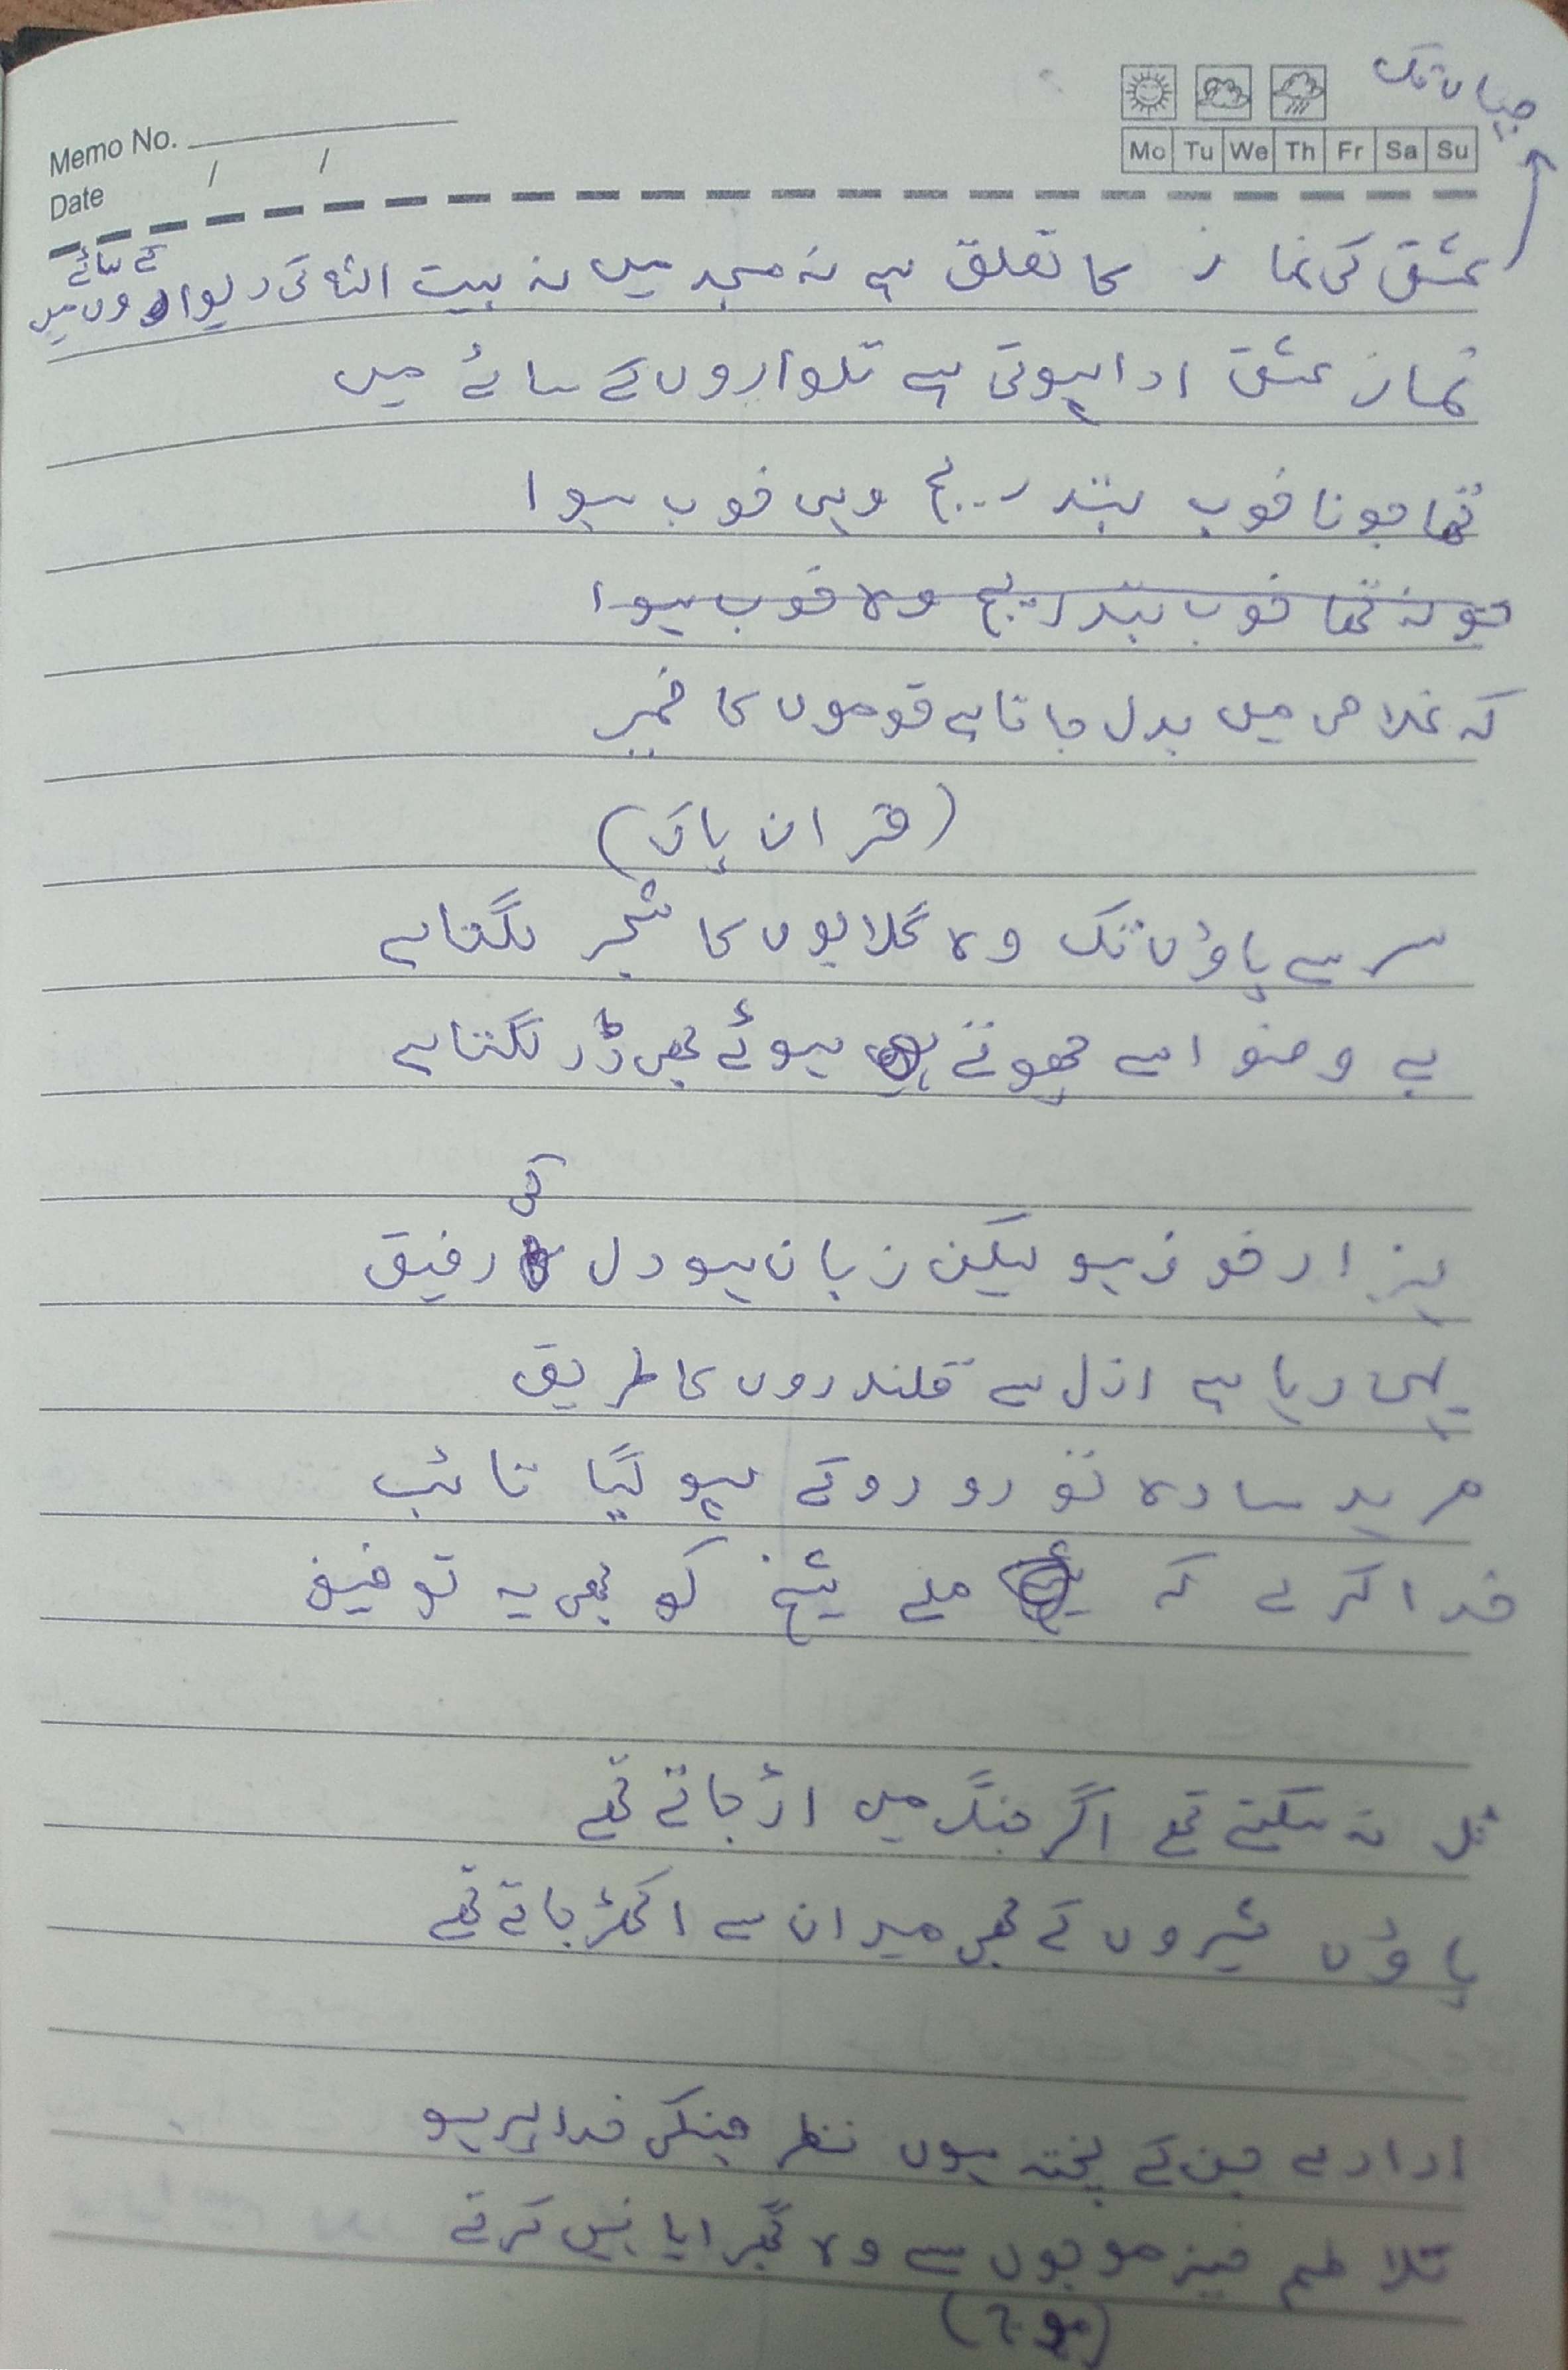 جہاں تک
Memo No.
Mo Tu We Th Fr Sa Su
Date / /
عشق کی نماز کا تعلق ہے نہ مسجد میں نہ بیت اللہ کی دیواروں میں
کے سائے
نماز عشق ادا ہوتی ہے تلواروں کے سائے میں
تھا جو نا خوب بتدریج وہی خوب ہوا
جو نہ تھا خوب بتدریج وہ خوب ہوا
کہ غلامی میں بدل جاتا ہے قوموں کا ضمیر
(قران پاک)
سر سے پاؤں تک وہ گلابوں کا شجر لگتا ہے
بے وضو اسے چھوتے ہوئے بھی ڈر لگتا ہے
کی
ہزار خوف ہو لیکن زبان ہو دل رفیق
یہی رہا ہے ازل سے قلندروں کا طریق
مرید سادہ تو رو رو کے ہو گیا تائب
خدا کرے کہ ملے شیخ کو بھی یہ توفیق
ٹل نہ سکتے تھے اگر جنگ میں اڑ جاتے تھے
پاؤں شیروں کے بھی میدان سے اکھڑ جاتے تھے
ارادے جن کے پختہ ہوں نظر جنکی خدا پر ہو
تلاطم خیز موجوں سے وہ گھبرایا نہیں کرتے
(موج)